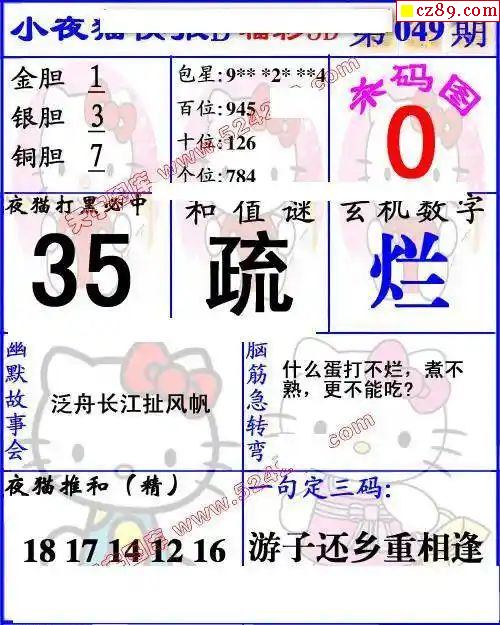 cz89.com
小夜猫快报D 福彩3D 第049期
金胆 1
银胆 3
铜胆 7
包星:9** *2* **4
百位:945
十位:126
个位:784
杀码图
0
夜猫打黑必中
35
和值谜
疏
玄机数字
烂
幽默故事会
泛舟长江扯风帆
脑筋急转弯
什么蛋打不烂，煮不
熟，更不能吃?
夜猫推和（精）
18 17 14 12 16
一句定三码:
游子还乡重相逢